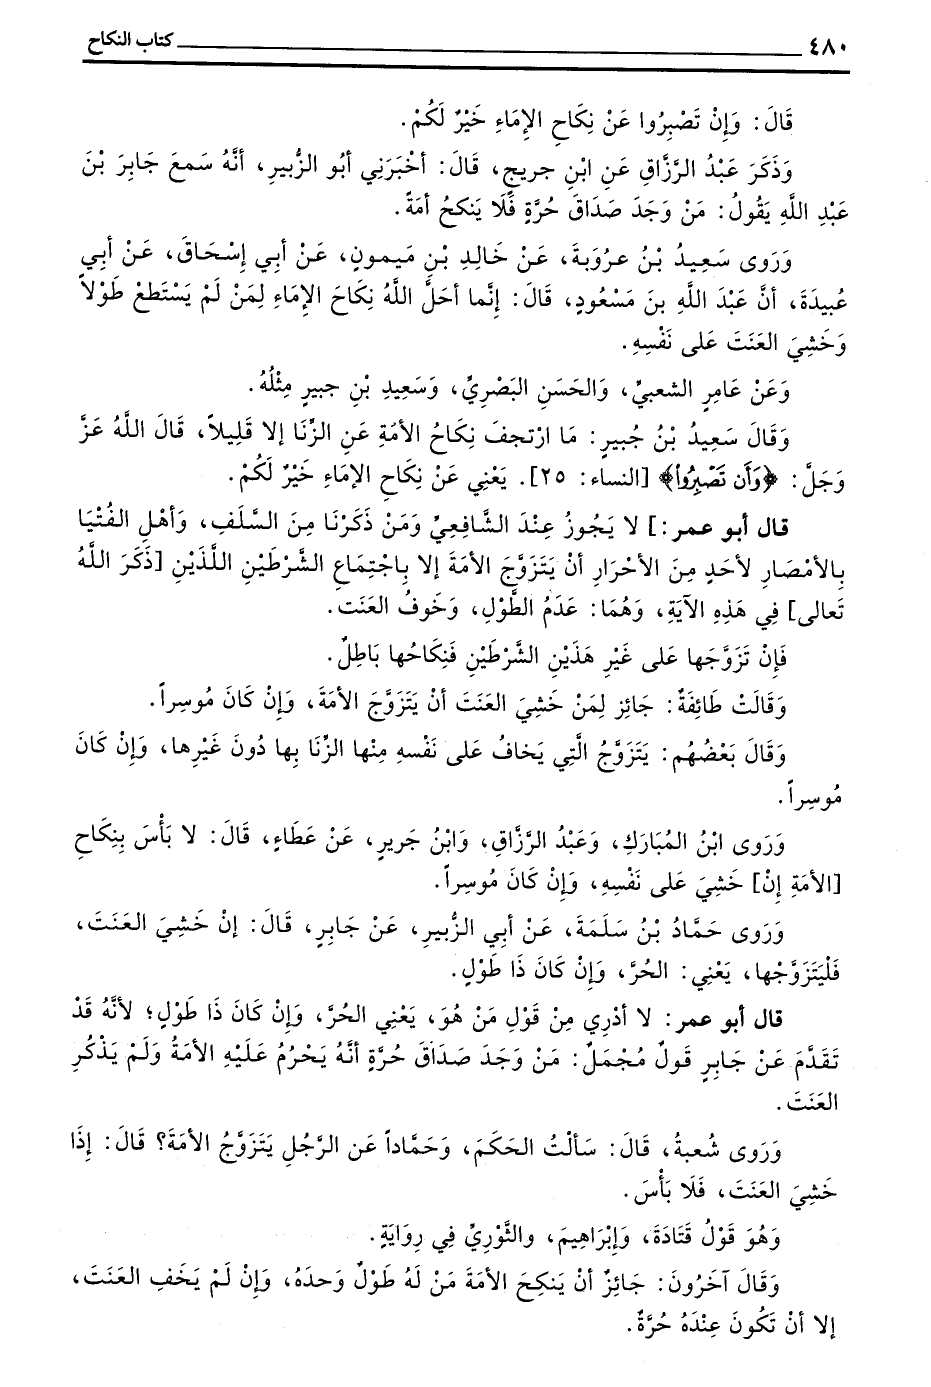 ٤٨٠ كتاب النكاح
قَالَ: وَإِنْ تَصْبِرُوا عَنْ نِكَاحِ الإِمَاءِ خَيْرٌ لَكُمْ.
وَذَكَرَ عَبْدُ الرَّزَّاقِ عَنِ ابْنِ جريجٍ، قَالَ: أخْبَرَنِي أبُو الزُّبيرِ، أنَّهُ سَمعَ جَابِرَ بْنَ
عَبْدِ اللَّهِ يَقُولُ: مَنْ وَجَدَ صَدَاقَ حُرَّةٍ فَلَا يَنكحُ أمَةً.
وَرَوى سَعِيدُ بْنُ عرُوبَةَ، عَنْ خَالِدِ بْنِ مَيمونٍ، عَنْ أبِي إِسْحَاقَ، عَنْ أبِي
عُبيدَةَ، أنَّ عَبْدَ اللَّهِ بنَ مَسْعُودٍ، قَالَ: إنَّما أحَلَّ اللَّهُ نِكَاحَ الإمَاءِ لِمَنْ لَمْ يَسْتَطعْ طَوْلاً
وَخَشِيَ العَنَتَ عَلى نَفْسِهِ.
وَعَنْ عَامِرٍ الشعبيِّ، وَالحَسَنِ البَصْرِيِّ، وَسَعِيدِ بْنِ جبيرٍ مِثْلُهُ.
وَقَالَ سَعِيدُ بْنُ جُبيرٍ: مَا ازْتجفَ نِكَاحُ الأمَةِ عَنِ الزِّنَا إلا قَلِيلاً، قَالَ اللَّهُ عَزَّ
وَجَلَّ: ﴿وَأَن تَصْبِرُوا﴾ [النساء: ٢٥]. يَعْنِي عَنْ نِكَاحِ الإمَاءِ خَيْرٌ لَكُمْ.
قال أبو عمر:] لا يَجُوزُ عِنْدَ الشَّافِعِيِّ وَمَنْ ذَكَرْنَا مِنَ السَّلَفِ، وَأهْلِ الفُتْيَا
بِالأمْصَارِ لأحَدٍ مِنَ الأحْرَارِ أنْ يَتَزَوَّجَ الأمَةَ إلا بِاجْتِمَاعِ الشَّرْطَيْنِ اللَّذَيْنِ [ذَكَرَ اللَّهُ
تَعالى] فِي هَذِهِ الآيَةِ، وَهُمَا: عَدَمُ الطَّوْلِ، وَخَوفُ العَنَت.
فَإِنْ تَزَوَّجَها عَلى غَيْرِ هَذَيْنِ الشَّرْطَيْنِ فَنِكَاحُها بَاطِلٌ.
وَقَالَتْ طَائِفَةٌ: جَائِز لِمَنْ خَشِيَ العَنَتَ أنْ يَتَزَوَّجَ الأمَةَ، وَإنْ كَانَ مُوسِراً.
وَقَالَ بَعْضُهُم: يَتَزَوَّجُ الَّتِي يَخافُ عَلى نَفْسهِ مِنْها الزِّنَا بِها دُونَ غَيْرِها، وَإنْ كَانَ
مُوسِراً.
وَرَوى ابْنُ المُبَارَكِ، وَعَبْدُ الرَّزَّاقِ، وَابْنُ جَريرٍ، عَنْ عَطَاءٍ، قَالَ: لا بَأْسَ بِنِكَاحِ
[الأمَةِ إنْ] خَشِيَ عَلى نَفْسِهِ، وَإنْ كَانَ مُوسِراً.
وَرَوى حَمَّادُ بْنُ سَلَمَةَ، عَنْ أبِي الزُّبيرِ، عَنْ جَابِرٍ، قَالَ: إنْ خَشِيَ العَنَتَ،
فَلْيَتَزَوَّجْها، يَعْنِي: الحُرَّ، وَإنْ كَانَ ذَا طَوْلٍ.
قال أبو عمر: لا أدْرِي مِنْ قَولِ مَنْ هُوَ، يَعْنِي الحُرَّ، وَإنْ كَانَ ذَا طَوْلٍ؛ لأنَّهُ قَدْ
تَقَدَّمَ عَنْ جَابِرٍ قَولٌ مُجْمَلٌ: مَنْ وَجَدَ صَدَاقَ حُرَّةٍ أنَّهُ يَحْرُمُ عَلَيْهِ الأمَةُ وَلَمْ يَذْكُرِ
العَنَتَ.
وَرَوى شُعبةُ، قَالَ: سَألْتُ الحَكَمَ، وَحَمَّاداً عَن الرَّجُلِ يَتَزَوَّجُ الأمَةَ؟ قَالَ: إِذَا
خَشِيَ العَنَتَ، فَلَا بَأْسَ.
وَهُوَ قَوْلُ قَتَادَةَ، وَإبْرَاهِيمَ، والثَّوْرِيِّ فِي رِوَايَةٍ.
وَقَالَ آخَرُونَ: جَائِزٌ أنْ يَنكِحَ الأمَةَ مَنْ لَهُ طَوْلٌ وَحدَهُ، وَإنْ لَمْ يَخَفِ العَنَتَ،
إلا أنْ تَكُونَ عِنْدَهُ حُرَّةٌ.